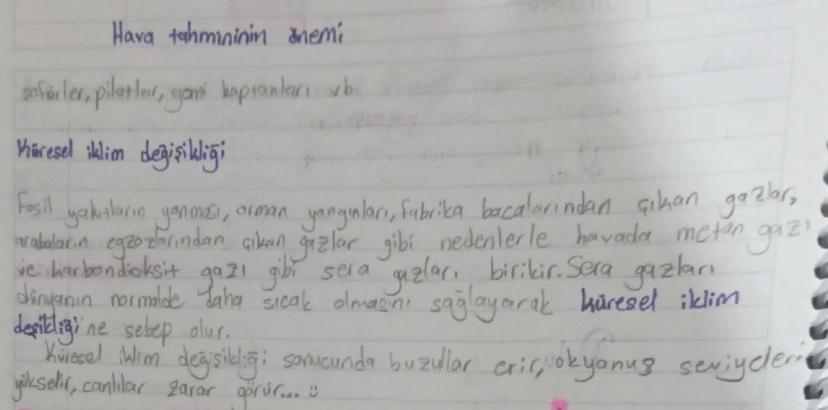 Hava tahmininin önemi
şoförler, pilotlar, gemi kaptanları vb.
Küresel iklim değişikliği
Fosil yakıtların yanması, orman yangınları, fabrika bacalarından çıkan gazlar,
arabaların egzozlarından çıkan gazlar gibi nedenlerle havada metan gazı
ve karbondioksit gazı gibi sera gazları birikir. Sera gazları
dünyanın normalde daha sıcak olmasını sağlayarak küresel iklim
deşikliği'ne sebep olur.
Küresel iklim değişikliği sonucunda buzullar erir, okyanus seviyeleri
yükselir, canlılar zarar görür... ü